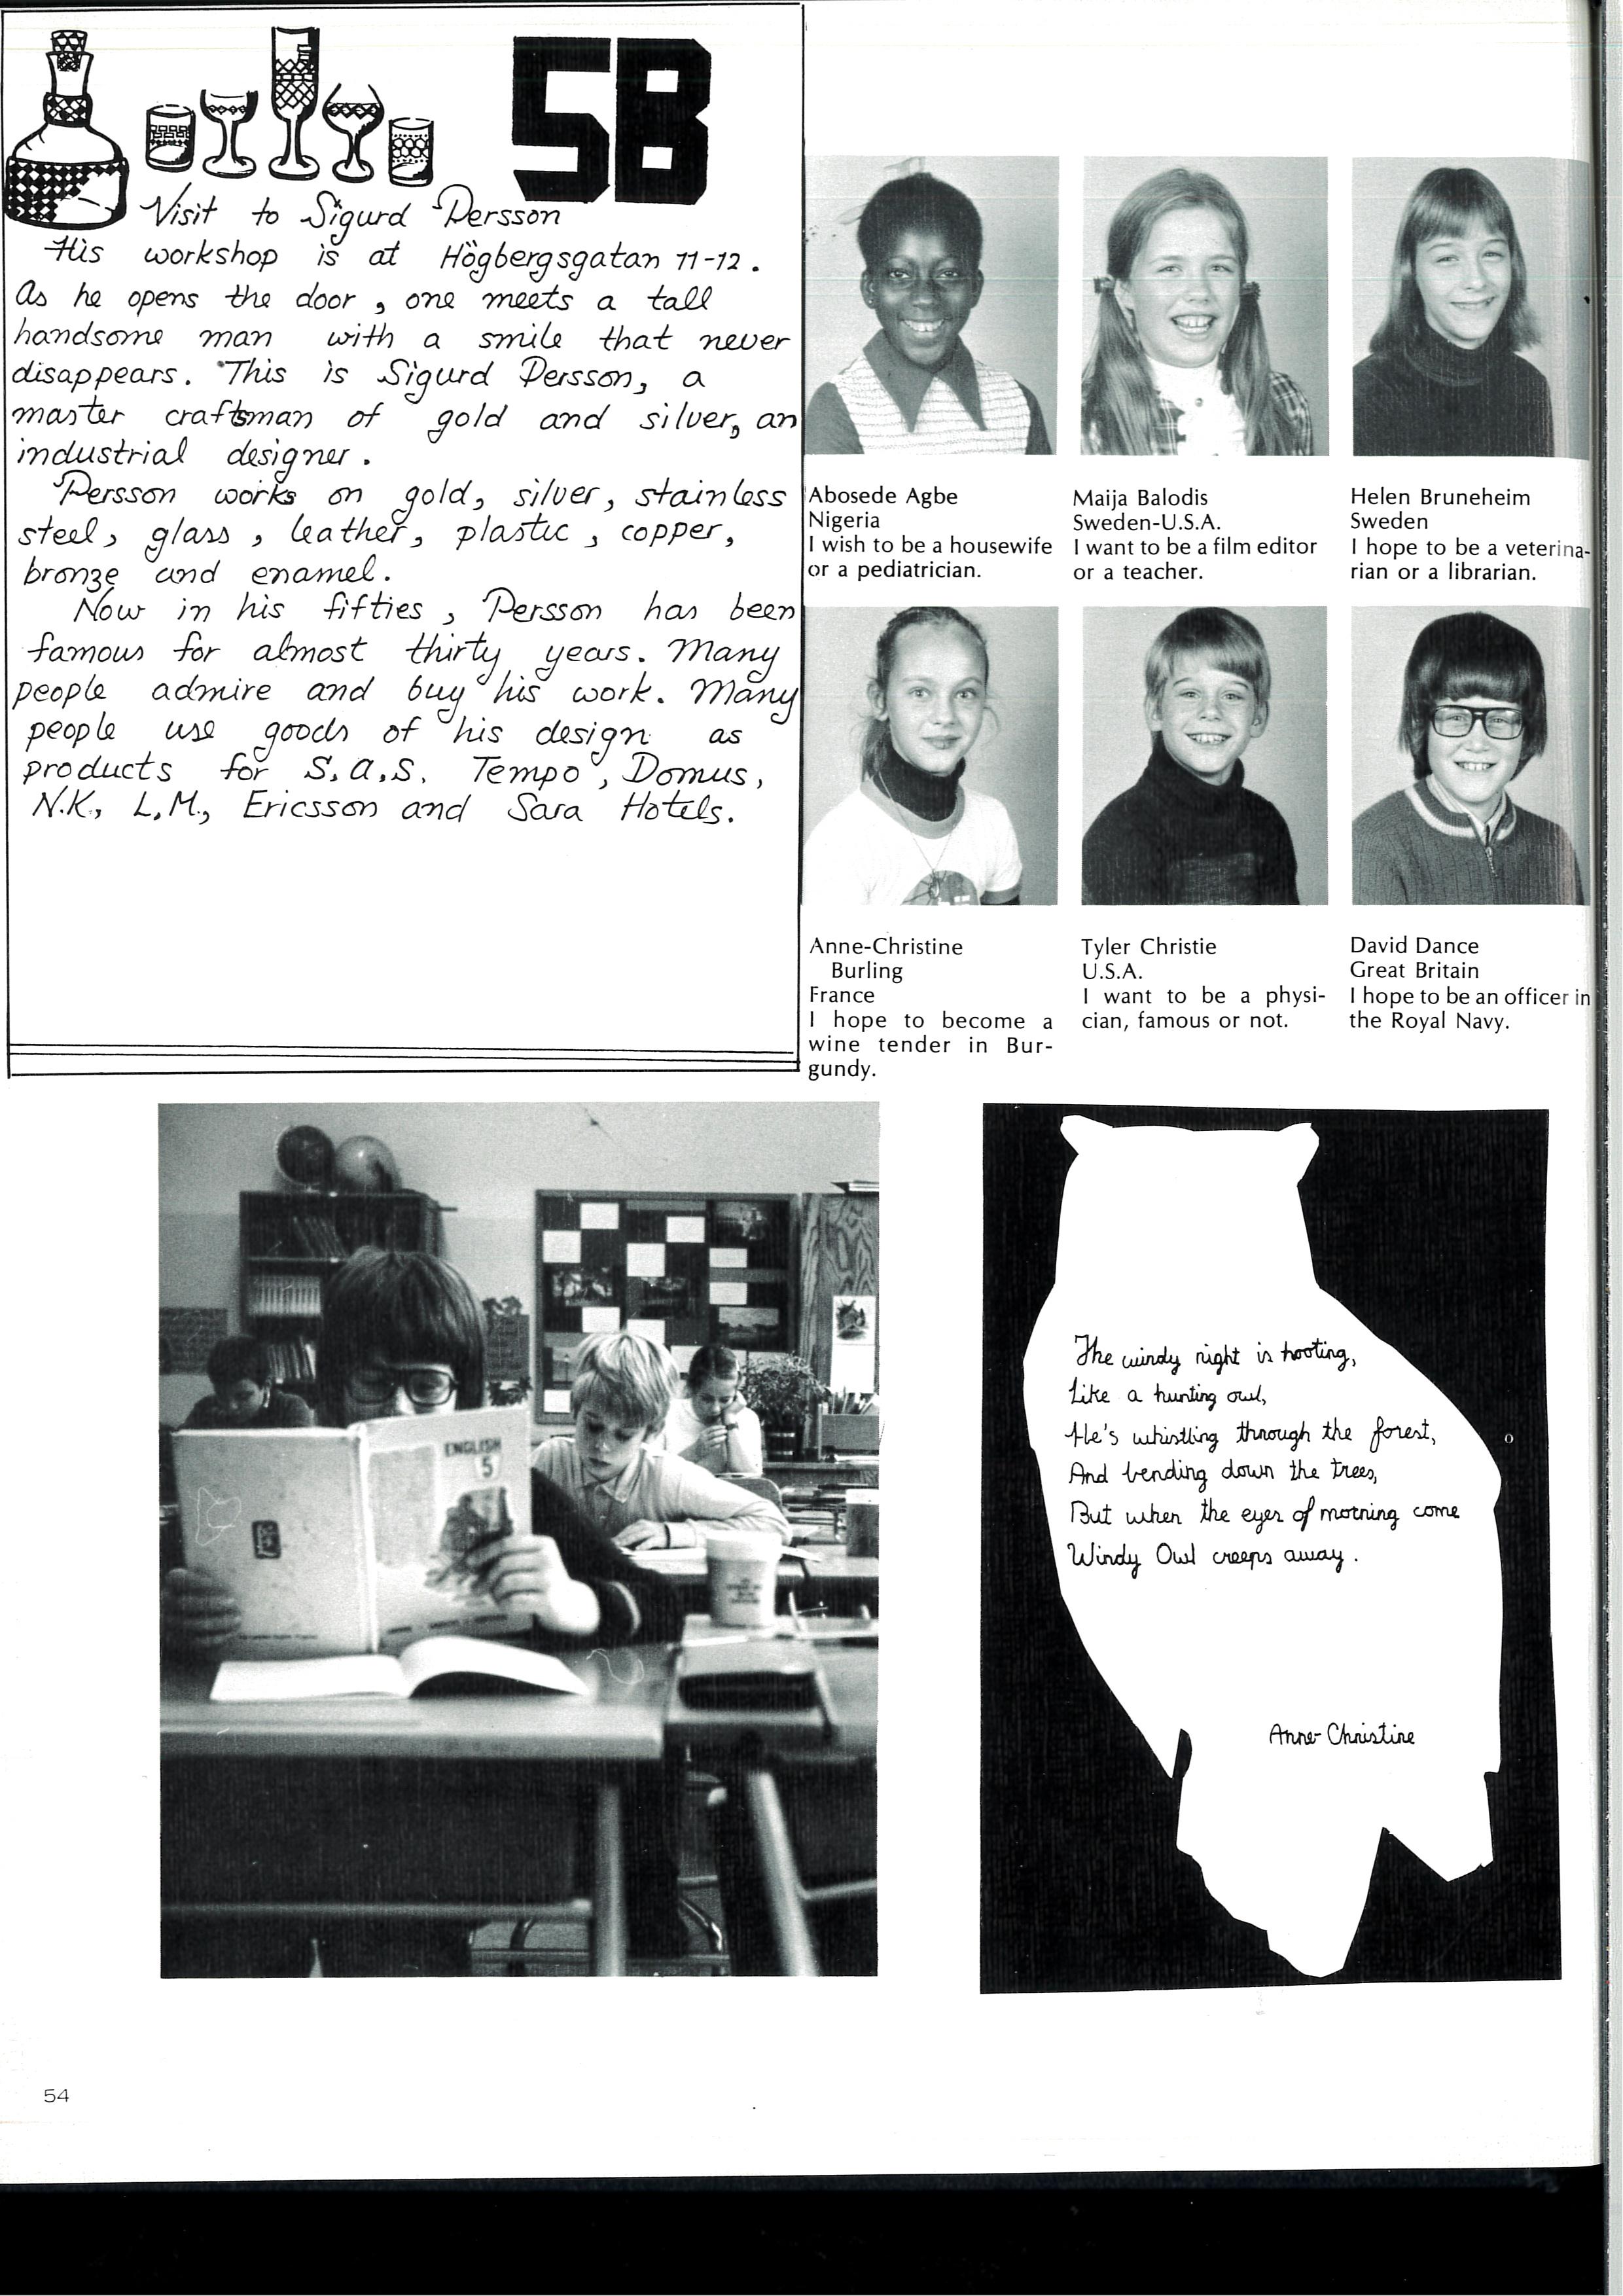 5B
Visit to Sigurd Persson
His workshop is at Högbergsgatan 11-12.
As he opens the door, one meets a tall
handsome man with a smile that never
disappears. This is Sigurd Persson, a
master craftsman of gold and silver, an
industrial designer.
Persson works on gold, silver, stainless
steel, glass, leather, plastic, copper,
bronze and enamel.
Now in his fifties, Persson has been
famous for almost thirty years. Many
people admire and buy his work. Many
people use goods of his design as
products for S.A.S. Tempo, Domus,
N.K., L.M., Ericsson and Sara Hotels.
Abosede Agbe
Nigeria
I wish to be a housewife
or a pediatrician.
Maija Balodis
Sweden-U.S.A.
I want to be a film editor
or a teacher.
Helen Bruneheim
Sweden
I hope to be a veterina-
rian or a librarian.
Anne-Christine
Burling
France
I hope to become a
wine tender in Bur-
gundy.
Tyler Christie
U.S.A.
I want to be a physi-
cian, famous or not.
David Dance
Great Britain
I hope to be an officer in
the Royal Navy.
ENGLISH
5
The windy night is hooting,
Like a hunting owl,
He's whistling through the forest,
And bending down the trees,
But when the eyes of morning come
Windy Owl creeps away.
Anne-Christine
54